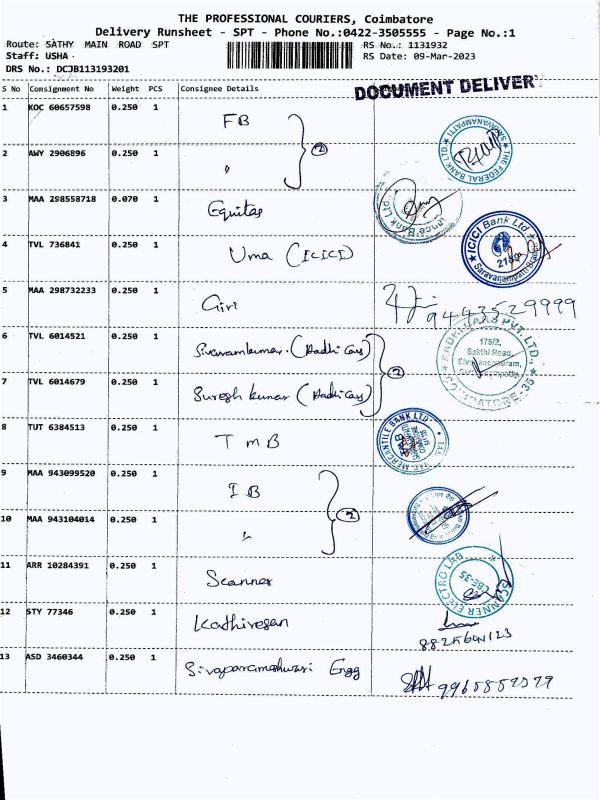 THE PROFESSIONAL COURIERS, Coimbatore
Delivery Runsheet - SPT - Phone No.:0422-3505555 - Page No.:1
Route: SATHY MAIN ROAD SPT
RS No.: 1131932
Staff: USHA
RS Date: 09-Mar-2023
DRS No.: DCJB113193201
DOCUMENT DELIVER
S No Consignment No Weight PCS Consignee Details
1 KOC 60657598 0.250 1 FB
2 AWY 2906896 0.250 1 "
2
THE FEDERAL BANK LTD SARAVANAMPATTI
3 MAA 298558718 0.070 1 Equitas
Bank Ltd
4 TVL 736841 0.250 1 Uma (ICICI)
ICICI Bank Ltd
5 MAA 298732233 0.250 1 Giri
9443529999
6 TVL 6014521 0.250 1 Sivaramkumar. (Aadhi Cars)
7 TVL 6014679 0.250 1 Suresh kumar (Aadhi Cars)
2
PVT. LTD.
176/2,
Sakthi Road,
8 TUT 6384513 0.250 1 TMB
MERCANTILE BANK LTD
9 MAA 943099520 0.250 1 IB
10 MAA 943104014 0.250 1 "
2
11 ARR 10284391 0.250 1 Scanner
SCANNER ELECTRO LAB
CBE-35
12 STY 77346 0.250 1 Kathiresan
13 ASD 3460344 0.250 1 Sivaparameshwari Engg